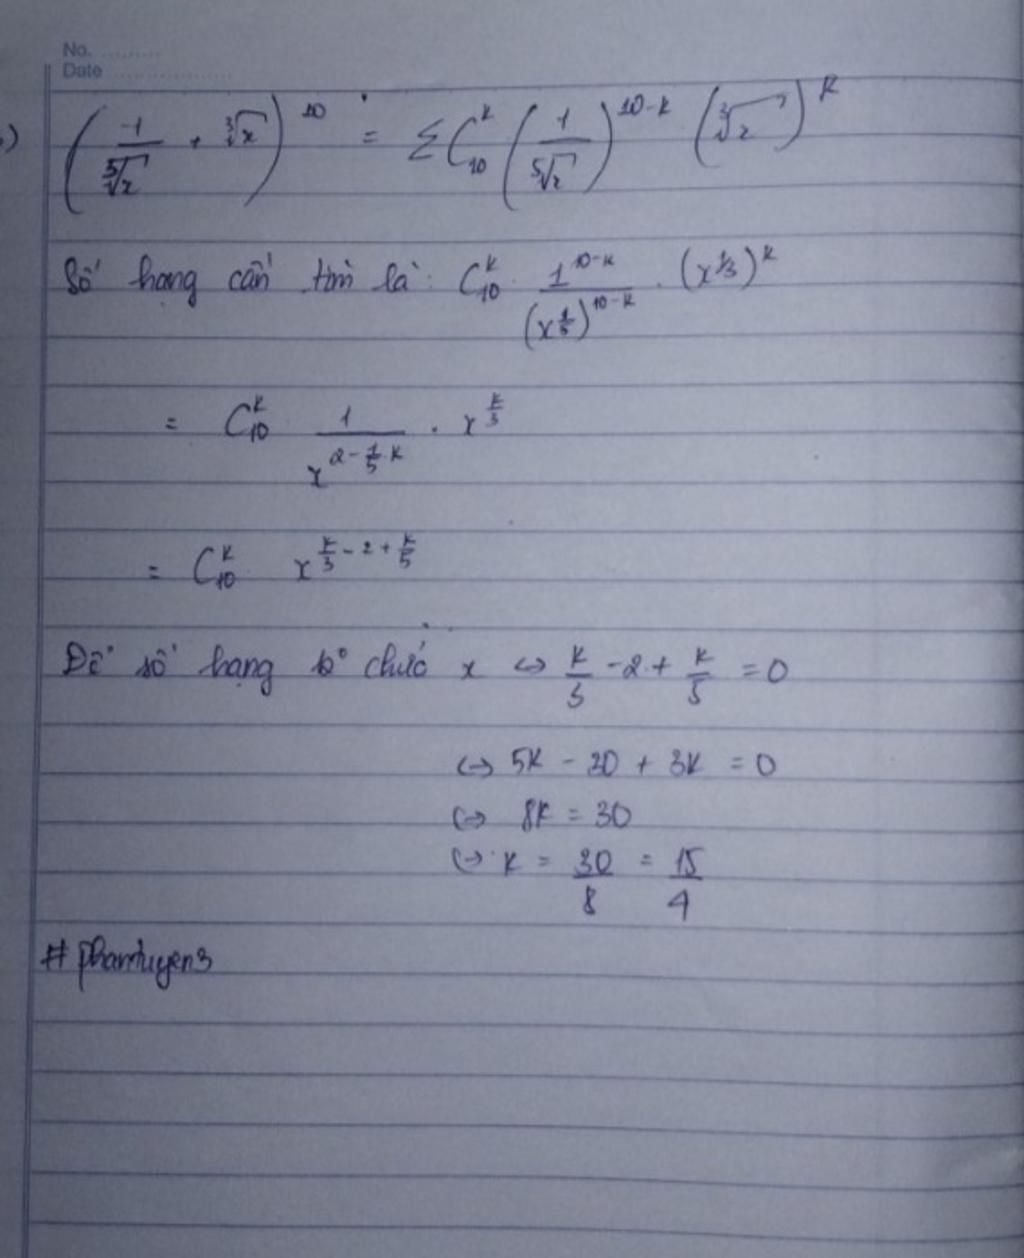 No. ..........
Date ..................
) ( -1/⁵√x + ³√x )^10 = Σ C_10^k ( 1/⁵√x )^(10-k) ( ³√x )^k
Số hạng cần tìm là: C_10^k 1^(10-k)/(x^(1/5))^(10-k) . (x^(1/3))^k
= C_10^k 1/x^(2-1/5.k) . x^(k/3)
= C_10^k x^(k/3 - 2 + k/5)
Để số hạng ko chứa x <=> k/3 - 2 + k/5 = 0
<=> 5k - 30 + 3k = 0
<=> 8k = 30
<=> k = 30/8 = 15/4
# phamtuyen3